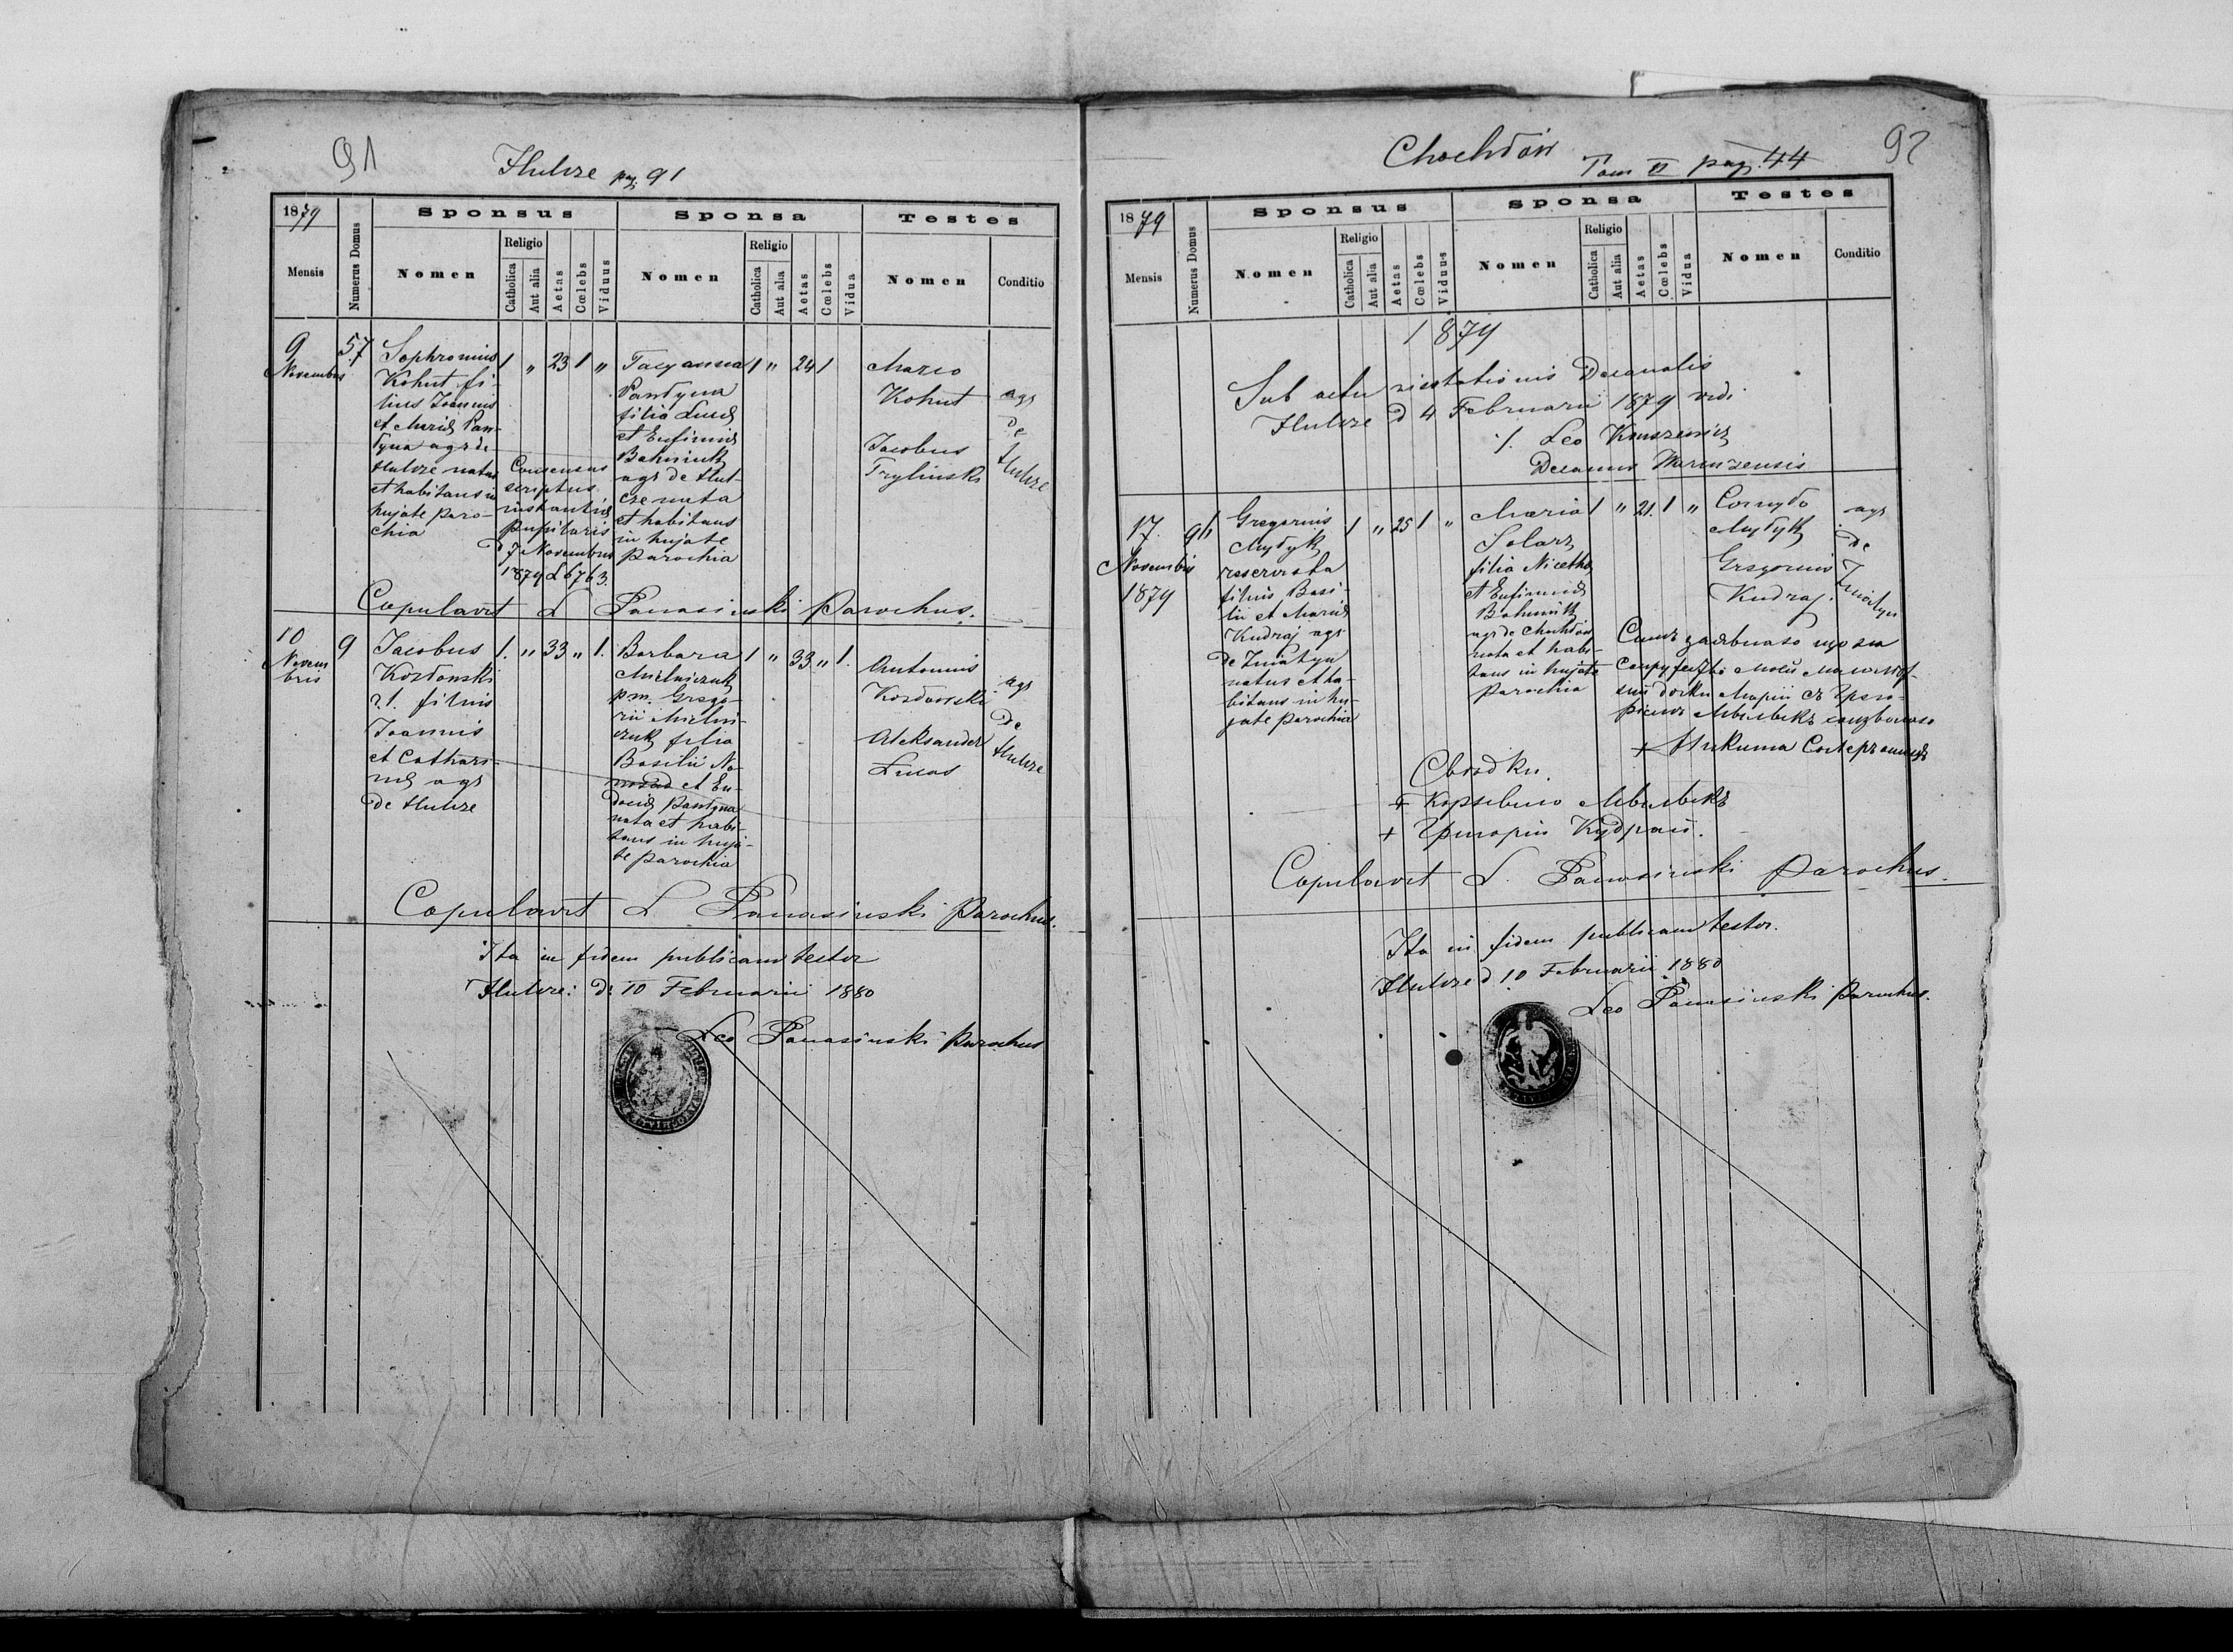 91
Hulcze pag. 91
1879
Mensis
Numerus Domus
Sponsus
Nomen
Religio
Catholica
Aut alia
Aetas
Cœlebs
Viduus
Sponsa
Nomen
Religio
Catholica
Aut alia
Aetas
Cœlebs
Vidua
Testes
Nomen
Conditio
9
Novembris
57
Sophronius
Kohut fi-
lius Joannis
et Mariæ Pan-
tyna agr de
Hulcze natus
et habitans in
hujate paro-
chia
1 " 23 1 "
Consensus
scriptus
instantiæ
pupilaris
d 7 Novembris
1879 L 6763.
Tacyanna
Pantyna
filia Lucæ
et Eufimiæ
Bahniuk
agr de Hul-
cze nata
et habitans
in hujate
parochia
1 " 24 1
Marco
Kohut
Jacobus
Trylinski
agr
de
Hulcze
Copulavit L Panasinski Parochus.
10
Novem
bris
9
Jacobus
filius
Joannis
et Cathari-
næ agr
de Hulcze
1. " 33 " 1.
Barbara
Mielniczuk
p.m. Grego-
rii Mielni-
czuk filia
Basilii
et Eu-
dociæ Pantyna
nata et habi-
tans in huja-
te parochia
1 " 33 " 1.
Antonius
Aleksander
Lucas
agr
de
Hulcze
Copulavit L Panasinski Parochus.
Ita in fidem publicam testor
Hulcze: d: 10 Februarii 1880
Leo Panasinski Parochus
92
Chochłów
Tom II pag. 44
1879
Mensis
Numerus Domus
Sponsus
Nomen
Religio
Catholica
Aut alia
Aetas
Cœlebs
Viduus
Sponsa
Nomen
Religio
Catholica
Aut alia
Aetas
Cœlebs
Vidua
Testes
Nomen
Conditio
1879
Sub actu visitationis Decanalis
Hulcze d 4 Februarii 1879 vidi
Leo
Decanus
17.
Novembris
1879
Gregorius
reservista
filius Basi-
lii et Mariæ
Kudraj agr
de Zniatyn
natus et ha-
bitans in hu-
jate parochia
1 " 25 1 "
Maria
Solarz
filia Nicetho
et Eufimiæ
Bahniuk
agr de Chochłów
nata et habi-
tans in hujate
parochia
1 " 21. 1 "
Gregorius
Kudraj.
agr
de
Zniatyn
Симъ заявляю що на
Свѣдки.
+ Григорій Кудрай.
Copulavit L. Panasinski Parochus.
Ita in fidem publicam testor.
Hulcze d 10 Februarii 1880
Leo Panasinski Parochus.